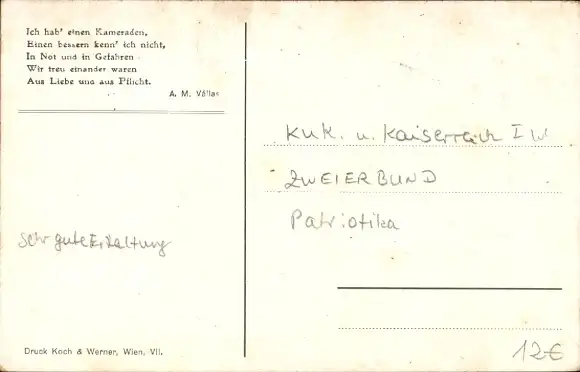 Ich hab' einen Kameraden,
Einen bessern kenn' ich nicht,
In Not und in Gefahren
Wir treu einander waren
Aus Liebe und aus Pflicht.
A. M. Vállas
Sehr gute Erhaltung
Druck Koch & Werner, Wien, VII.
KuK. u. Kaiserreich I W
ZWEIERBUND
Patriotika
12€